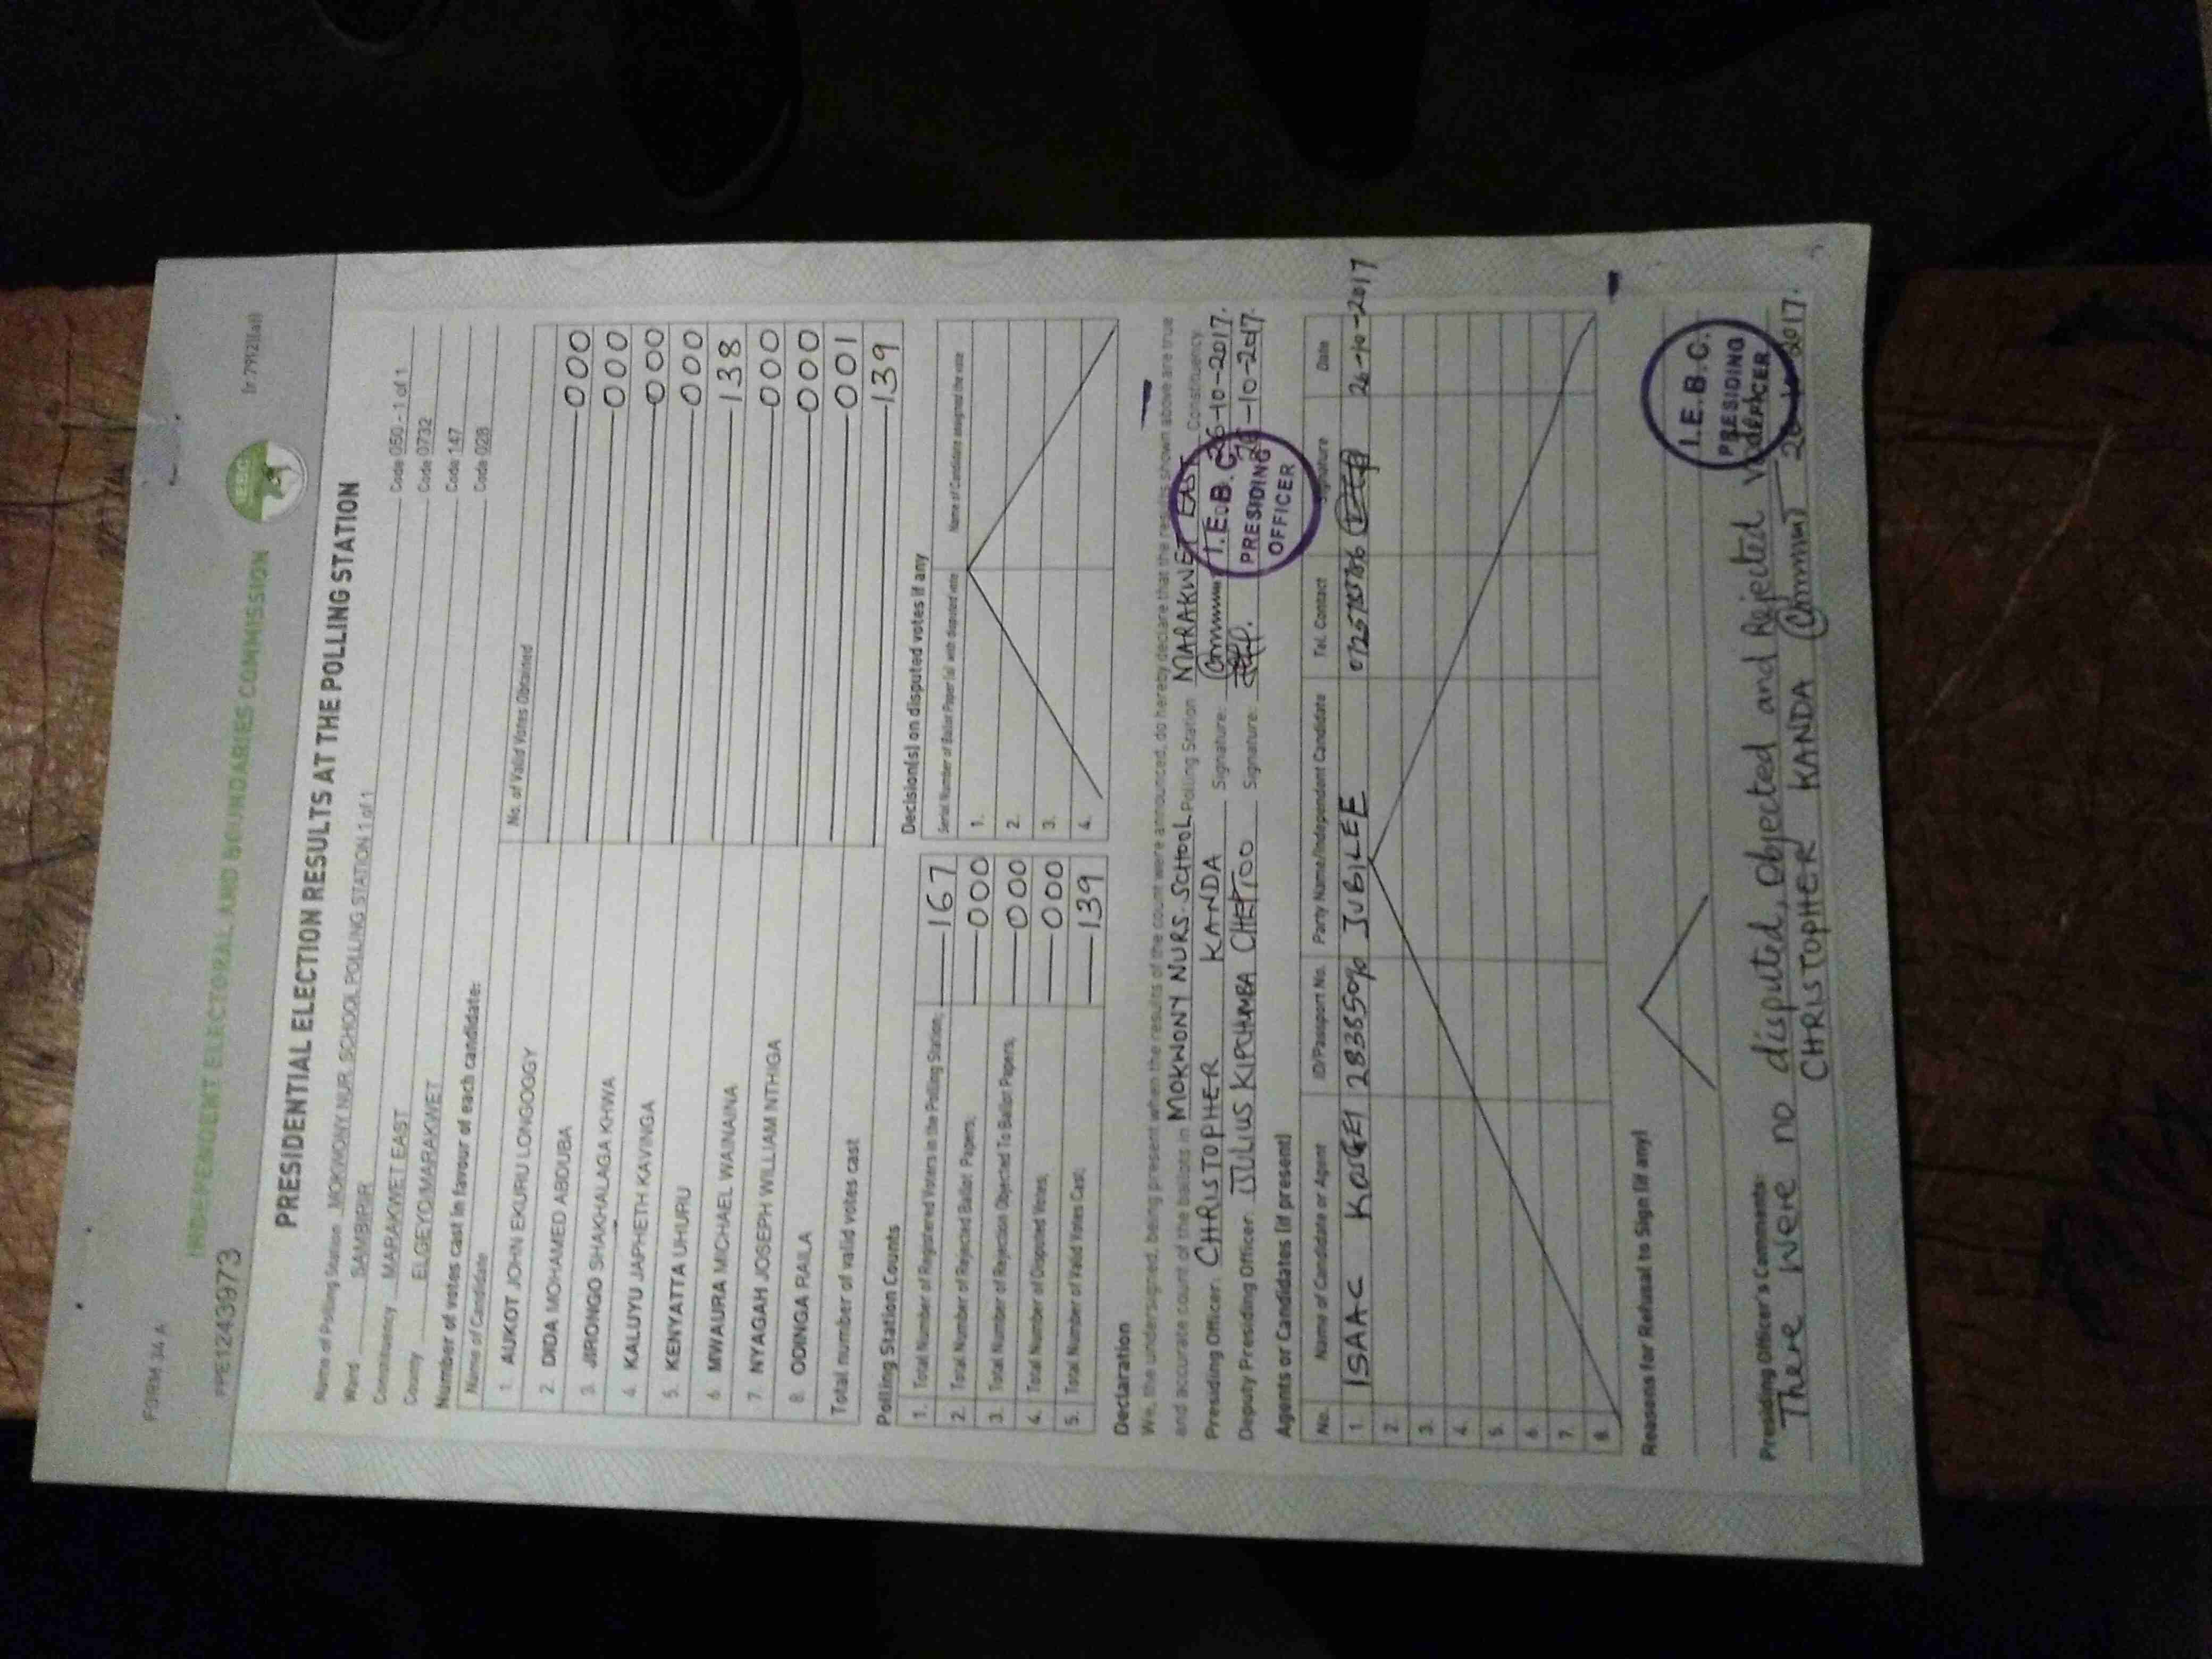 FORM 34 A
PPE12439973
INDEPENDENT ELECTORAL AND BOUNDARIES COMMISSION
PRESIDENTIAL ELECTION RESULTS AT THE POLLING STATION
Name of Polling Station MOKWONY NUR. SCHOOL POLLING STATION 1 of 1 Code 050 - 1 of 1
Ward SAMBIRIR Code 0732
Constituency MARAKWET EAST Code 147
County ELGEYO/MARAKWET Code 028
Number of votes cast in favour of each candidate:
Name of Candidate No. of Valid Votes Obtained
1. AUKOT JOHN EKURU LONGOGGY 000
2. DIDA MOHAMED ABDUBA 000
3. JIRONGO SHAKHALAGA KHWA 000
4. KALUYU JAPHETH KAVINGA 000
5. KENYATTA UHURU 138
6. MWAURA MICHAEL WAINAINA 000
7. NYAGAH JOSEPH WILLIAM NTHIGA 000
8. ODINGA RAILA 001
Total number of valid votes cast 139
Polling Station Counts
1. Total Number of Registered Voters in the Polling Station; 167
2. Total Number of Rejected Ballot Papers; 000
3. Total Number of Rejection Objected To Ballot Papers; 000
4. Total Number of Disputed Votes; 000
5. Total Number of Valid Votes Cast; 139
Decision(s) on disputed votes if any
Serial Number of Ballot Paper (s) with disputed vote Name of Candidate assigned the vote
1.
2.
3.
4.
Declaration
We, the undersigned, being present when the results of the count were announced, do hereby declare that the results shown above are true
and accurate count of the ballots in MOKWONY NURS. SCHOOL Polling Station MARAKWET EAST Constituency.
Presiding Officer: CHRISTOPHER KANDA Signature: 26-10-2017.
Deputy Presiding Officer: JULIUS KIPCHUMBA CHEPTOO Signature: 26-10-2017.
I.E.B.C.
PRESIDING
OFFICER
Agents or Candidates (if present)
No. Name of Candidate or Agent ID/Passport No. Party Name/Independent Candidate Tel. Contact Signature Date
1. ISAAC JUBILEE 26-10-2017
2.
3.
4.
5.
6.
7.
8.
Reasons for Refusal to Sign (if any)
Presiding Officer's Comments:
There were no disputed, Objected and Rejected
CHRISTOPHER KANDA 2017.
I.E.B.C.
PRESIDING
OFFICER